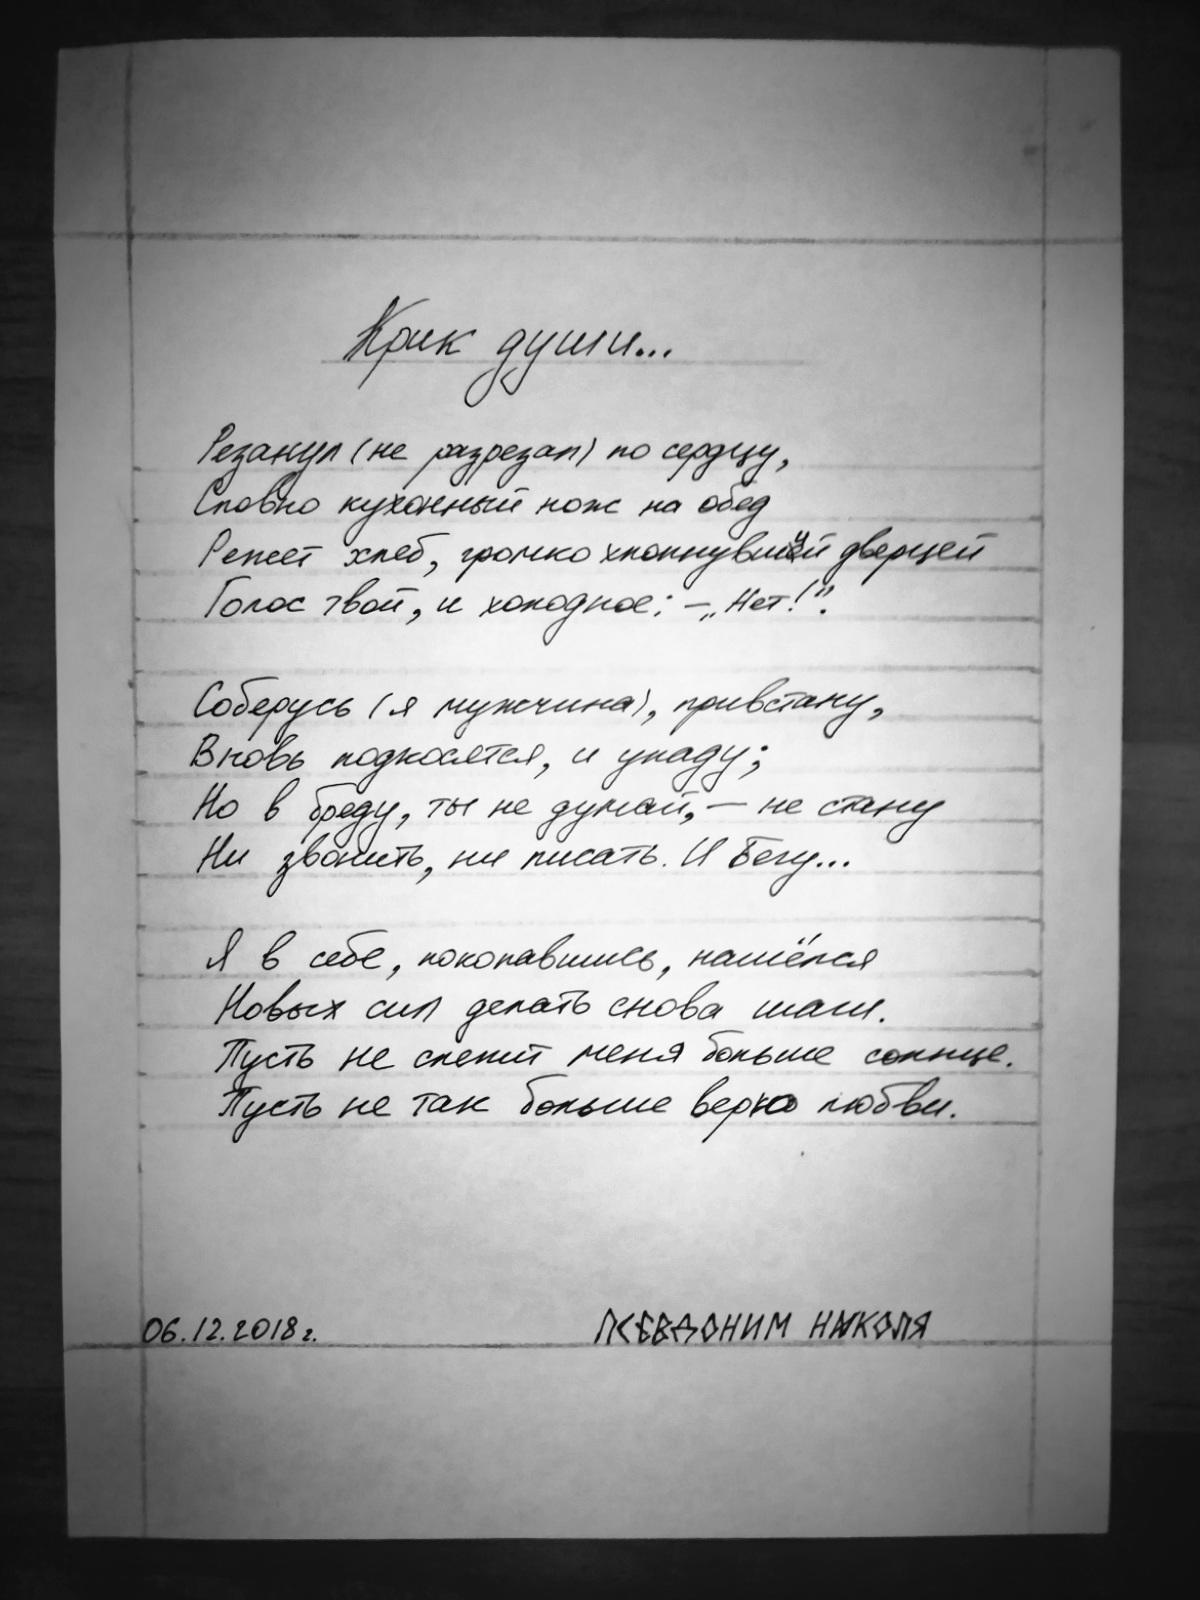 Крик души...
Резанул (не разрезал) по сердцу,
Словно кухонный нож на обед
Режет хлеб, громко хлопнувшей дверцей
Голос твой, и холодное: – „Нет!".
Соберусь (я мужчина), привстану,
Вновь подкосятся, и упаду;
Но в бреду, ты не думай, – не стану
Ни звонить, ни писать. И Бегу...
Я в себе, покопавшись, нашёлся
Новых сил делать снова шаги.
Пусть не слепит меня больше солнце.
Пусть не так больше верю любви.
06.12.2018г.
ПСЕВДОНИМ НИКОЛЯ